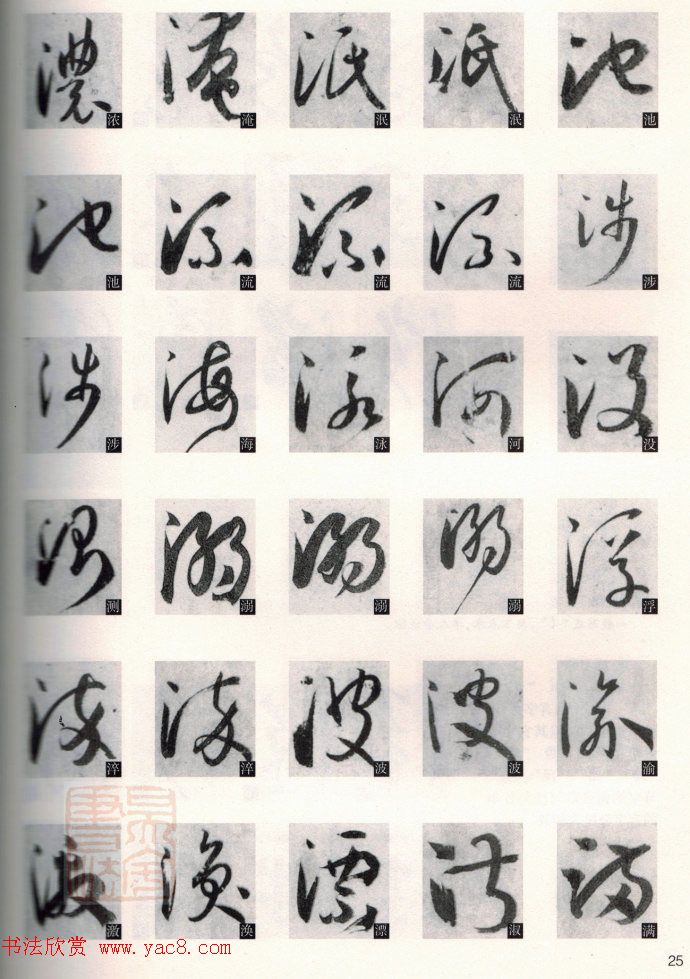 浓 淹 泯 泯 池
池 流 流 流 涉
涉 海 泳 河 没
测 溺 溺 溺 浮
淬 淬 波 波 渝
激 涣 漂 淑 满
书法欣赏 www.yac8.com
25